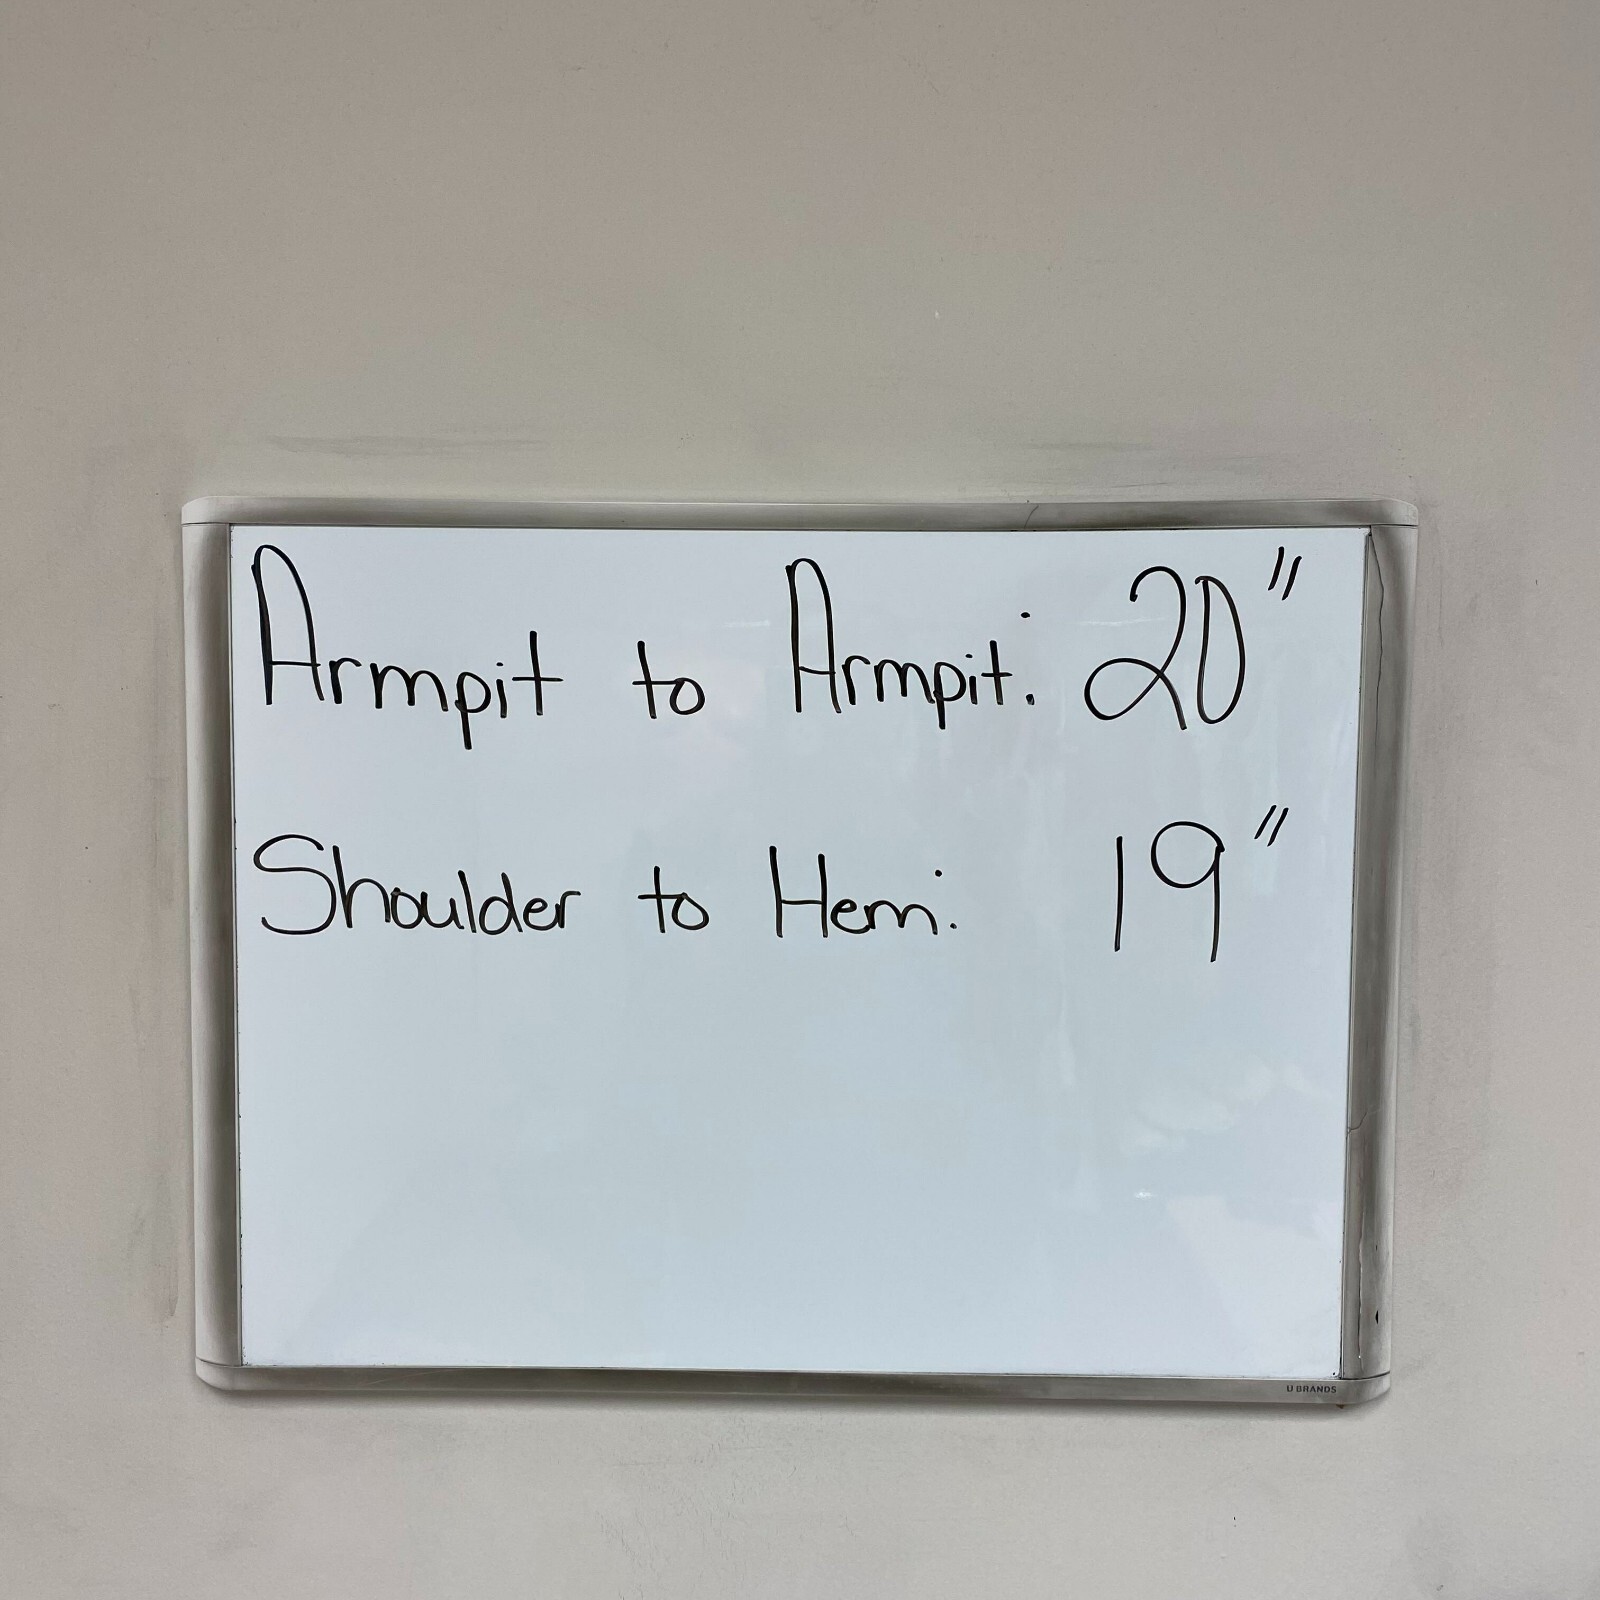 Armpit to Armpit: 20"
Shoulder to Hem: 19"
U BRANDS